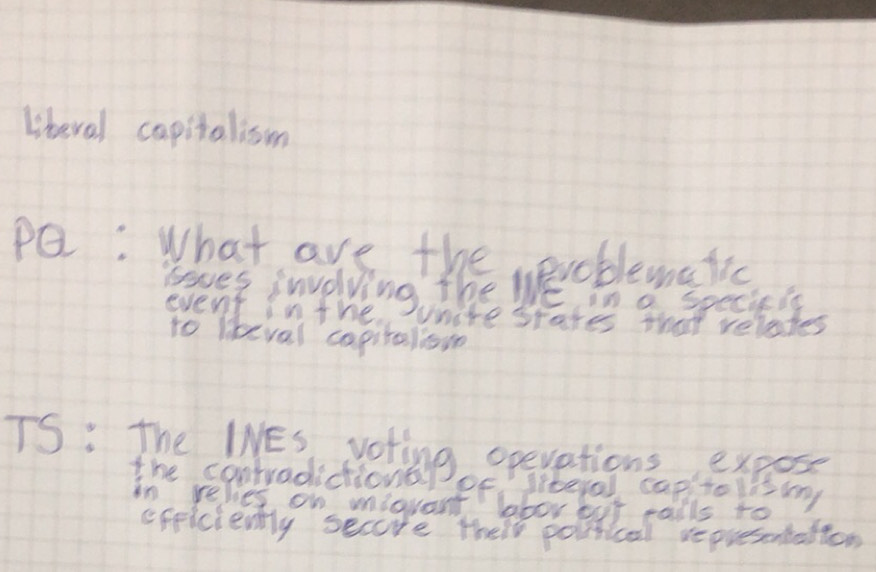 liberal capitalism
PQ : What are the problematic
issues involving the INE in a specific
event in the unite states that relates
to liberal capitalism
TS : The INEs voting operations expose
the contradictional of liberal capitalism,
in relies on migrant labor but fails to
efficiently secure their political representation